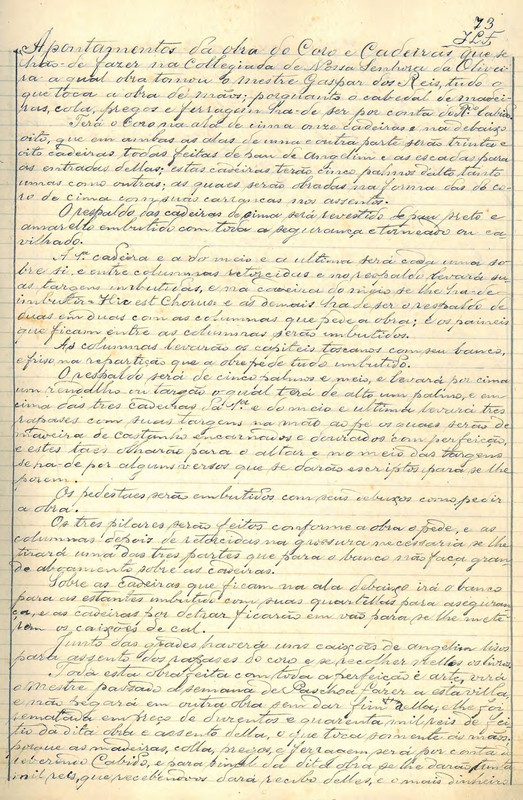 73
J.L.F.
Apontamentos da obra do Coro e Cadeiras que se
hão de fazer na Collegiada de Nossa Senhora da Olivei-
ra a qual obra tomou o mestre Gaspar dos Reis, tudo o
que toca a obra de mãos; porquanto o cabedal de madei-
ras, cola, pregos e ferragem ha-de ser por conta do Rdo Cabido.
Terá o Coro na ala de cima onze cadeiras e na debaixo
oito, que em ambas as alas de uma contra parte serão trinta e
oito cadeiras todas feitas de pau de angelim e as escadas para
as entradas dellas; estas cadeiras terão cinco palmos d'alto tanto
umas como outras; as quaes serão obradas na forma das do co-
ro de cima com suas carrancas nos assentos.
O respaldo das cadeiras de cima será revestido de pau preto e
amarello embutido com toda a segurança e torneado ou ca-
vilhado.
A 1ª cadeira e a do meio e a ultima será cada uma so-
bre si, e entre columnas retorcidas e no respaldo levará su-
as targens imbutidas, e na cadeira do meio se lhe ha-de
imbutir = Hic est Chorus = e as demais ha de ser o respaldo de
duas em duas com as columnas que pede a obra; e os paineis
que ficam entre as columnas serão imbutidos.
As columnas levarão os capiteis toscanos com seu banco,
e friso na repartição que a obra pede tudo imbutido.
O respaldo será de cinco palmos e meio, e levará por cima
um ramalho ou targão o qual terá de alto um palmo, e em
cima das tres cadeiras da 1ª e do meio e ultima levará tres
rapases com suas targens na mão ao pé os quaes serão de
madeira de castanho encarnados e dourados com perfeição,
e estes taes olharão para o altar e no meio das targens
se ha-de por alguns versos que se darão escriptos para se lhe
porem.
Os pedestaes serão embutidos com seus rebuxos como pedir
a obra.
Os tres pilares serão feitos conforme a obra o pede, e as
columnas depois de retorcidas na grossura necessaria se lhe
tirará uma das tres partes que para o banco não faça gran-
de avogamento sobre as cadeiras.
Sobre as Cadeiras que ficam na ala debaixo irá o banco
para as estantes imbutido com suas quartilhas para seguran-
ça, e as cadeiras por detraz ficarão em vão para se lhe mete-
rem os caixões de cal.
Junto das grades haverá uns caixões de angelim lisos
para assento dos rapazes do coro e se recolher nelles os livros.
Toda esta obra feita com toda a perfeição e arte, virá
o mestre passado a semana de Paschoa fazer a esta villa,
e não pegará em outra obra sem dar fim a ella, e lhe foi
rematada em preço de duzentos e quarenta mil reis de fei-
tio da dita obra e assento della, e que toca somente ás mãos,
porque as madeiras, colla, pregos, e ferragem será por conta do
reverendo Cabido, e para signal da dita obra se lhe darão trinta
mil reis, que recebendo-os dará recibo delles, e o mais dinheiro